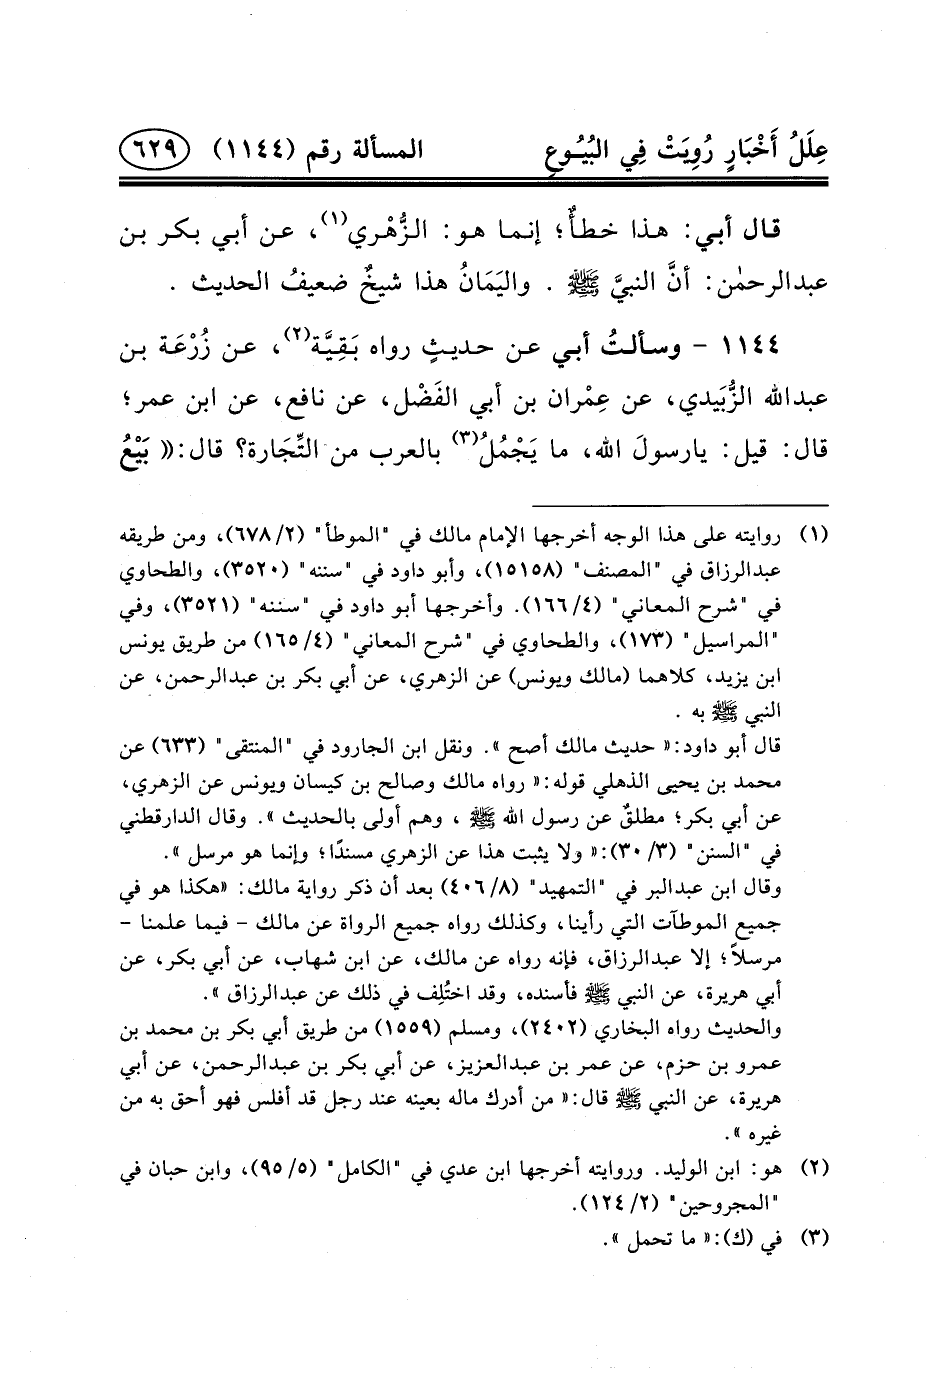 عِلَلُ أَخْبَارٍ رُوِيَتْ فِي البُيُوعِ المسألة رقم (١١٤٤) ٦٢٩
قال أبي: هذا خطأٌ؛ إنما هو: الزُّهْري(١)، عن أبي بكر بن
عبدالرحمٰن: أنَّ النبيَّ ﷺ . واليَمَانُ هذا شيخٌ ضعيفُ الحديث .
١١٤٤ - وسألتُ أبي عن حديثٍ رواه بَقِيَّة(٢)، عن زُرْعَة بن
عبدالله الزُّبَيدي، عن عِمْران بن أبي الفَضْل، عن نافع، عن ابن عمر؛
قال: قيل: يارسولَ الله، ما يَجْمُلُ(٣) بالعرب من التِّجَارة؟ قال:« بَيْعُ
(١) روايته على هذا الوجه أخرجها الإمام مالك في "الموطأ" (٢/ ٦٧٨)، ومن طريقه
عبدالرزاق في "المصنف" (١٥١٥٨)، وأبو داود في "سننه" (٣٥٢٠)، والطحاوي
في "شرح المعاني" (٤/ ١٦٦). وأخرجها أبو داود في "سننه" (٣٥٢١)، وفي
"المراسيل" (١٧٣)، والطحاوي في "شرح المعاني" (٤/ ١٦٥) من طريق يونس
ابن يزيد، كلاهما (مالك ويونس) عن الزهري، عن أبي بكر بن عبدالرحمن، عن
النبي ﷺ به .
قال أبو داود:« حديث مالك أصح ». ونقل ابن الجارود في "المنتقى" (٦٣٣) عن
محمد بن يحيى الذهلي قوله:« رواه مالك وصالح بن كيسان ويونس عن الزهري،
عن أبي بكر؛ مطلقٌ عن رسول الله ﷺ ، وهم أولى بالحديث ». وقال الدارقطني
في "السنن" (٣/ ٣٠):« ولا يثبت هذا عن الزهري مسندًا؛ وإنما هو مرسل ».
وقال ابن عبدالبر في "التمهيد" (٨/ ٤٠٦) بعد أن ذكر رواية مالك: «هكذا هو في
جميع الموطآت التي رأينا، وكذلك رواه جميع الرواة عن مالك - فيما علمنا -
مرسلاً؛ إلا عبدالرزاق، فإنه رواه عن مالك، عن ابن شهاب، عن أبي بكر، عن
أبي هريرة، عن النبي ﷺ فأسنده، وقد اختُلِف في ذلك عن عبدالرزاق ».
والحديث رواه البخاري (٢٤٠٢)، ومسلم (١٥٥٩) من طريق أبي بكر بن محمد بن
عمرو بن حزم، عن عمر بن عبدالعزيز، عن أبي بكر بن عبدالرحمن، عن أبي
هريرة، عن النبي ﷺ قال:« من أدرك ماله بعينه عند رجل قد أفلس فهو أحق به من
غيره ».
(٢) هو: ابن الوليد. وروايته أخرجها ابن عدي في "الكامل" (٥/ ٩٥)، وابن حبان في
"المجروحين" (٢/ ١٢٤).
(٣) في (ك):« ما تحمل ».